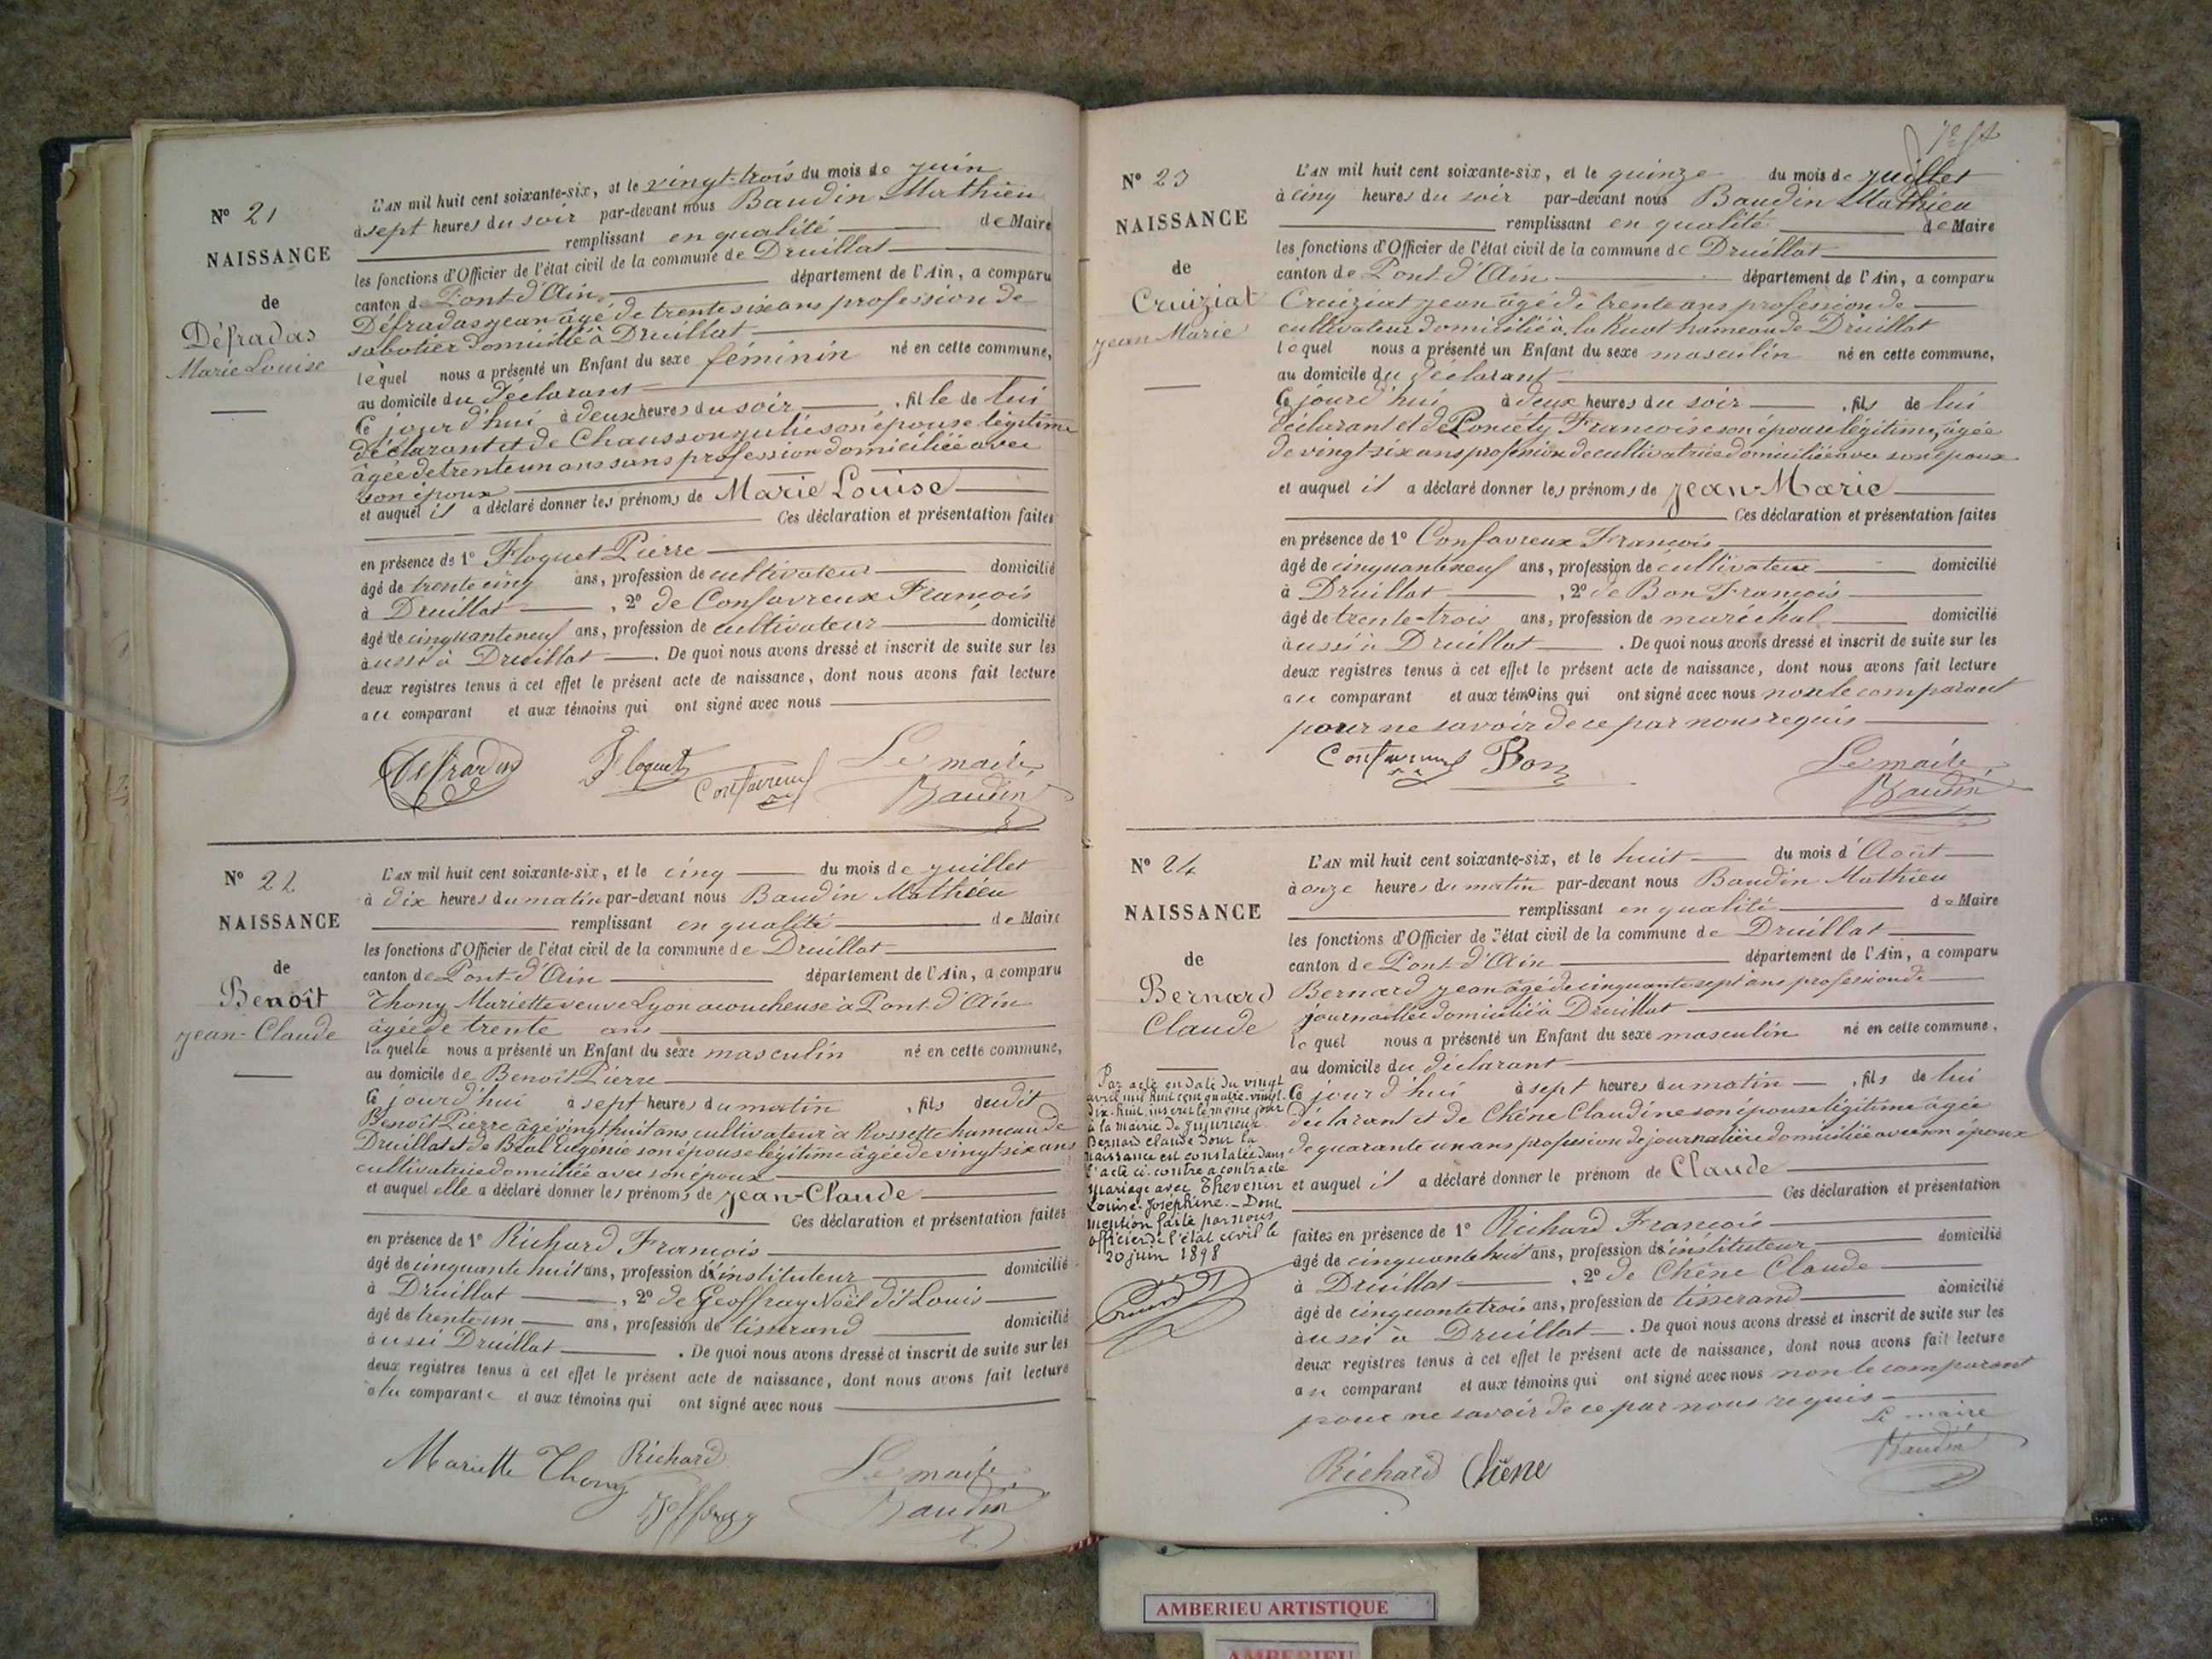 N° 21
NAISSANCE
de
Défradas
Marie Louise
L'AN mil huit cent soixante-six, et le vingt-trois du mois de juin
à sept heures du soir par-devant nous Baudin Mathieu
remplissant en qualité de Maire
les fonctions d'Officier de l'état civil de la commune de Druillat
canton de Pont-d'Ain département de l'Ain, a comparu
Défradas jean âgé de trente six ans profession de
sabotier domicilié à Druillat
lequel nous a présenté un Enfant du sexe féminin né en cette commune,
au domicile du déclarant
Ce jourd'hui à deux heures du soir, fille de lui
déclarant et de Chausson julie son épouse légitime
âgée de trente un ans sans profession domiciliée avec
son époux
et auquel il a déclaré donner les prénoms de Marie Louise
Ces déclaration et présentation faites
en présence de 1° Floquet Pierre
âgé de trente cinq ans, profession de cultivateur domicilié
à Druillat, 2° de Confavreux François
âgé de cinquante neuf ans, profession de cultivateur domicilié
aussi à Druillat. De quoi nous avons dressé et inscrit de suite sur les
deux registres tenus à cet effet le présent acte de naissance, dont nous avons fait lecture
au comparant et aux témoins qui ont signé avec nous
Défradas Floquet Confavreux Le maire
Baudin
N° 22
NAISSANCE
de
Benoît
jean-Claude
L'AN mil huit cent soixante-six, et le cinq du mois de juillet
à dix heures du matin par-devant nous Baudin Mathieu
remplissant en qualité de Maire
les fonctions d'Officier de l'état civil de la commune de Druillat
canton de Pont-d'Ain département de l'Ain, a comparu
Thony Mariette veuve Lyon acoucheuse à Pont-d'Ain
âgée de trente ans
laquelle nous a présenté un Enfant du sexe masculin né en cette commune,
au domicile de Benoît Pierre
Ce jourd'hui à sept heures du matin, fils dudit
Benoît Pierre âgé vingt huit ans cultivateur à Rossette hameau de
Druillat et de Béal Eugénie son épouse légitime âgée de vingt six ans
cultivatrice domiciliée avec son époux
et auquel elle a déclaré donner les prénoms de jean-Claude
Ces déclaration et présentation faites
en présence de 1° Richard François
âgé de cinquante huit ans, profession d'instituteur domicilié
à Druillat, 2° de Geoffray Noël dit Louis
âgé de trente un ans, profession de tisserand domicilié
aussi Druillat. De quoi nous avons dressé et inscrit de suite sur les
deux registres tenus à cet effet le présent acte de naissance, dont nous avons fait lecture
a la comparante et aux témoins qui ont signé avec nous
Mariette Thony Richard Le maire
Jeffray Baudin
N° 23
NAISSANCE
de
Cruiziat
jean Marie
L'AN mil huit cent soixante-six, et le quinze du mois de juillet
à cinq heures du soir par-devant nous Baudin Mathieu
remplissant en qualité de Maire
les fonctions d'Officier de l'état civil de la commune de Druillat
canton de Pont-d'Ain département de l'Ain, a comparu
Cruiziat jean âgé de trente ans profession de
cultivateur domicilié à la Ruat hameau de Druillat
lequel nous a présenté un Enfant du sexe masculin né en cette commune,
au domicile du déclarant
Ce jourd'hui à deux heures du soir, fils de lui
déclarant et de Poncéty Françoise son épouse légitime, âgée
de vingt-six ans profession de cultivatrice domiciliée avec son époux
et auquel il a déclaré donner les prénoms de jean-Marie
Ces déclaration et présentation faites
en présence de 1° Confavreux François
âgé de cinquante neuf ans, profession de cultivateur domicilié
à Druillat, 2° de Bon François
âgé de trente-trois ans, profession de maréchal domicilié
aussi à Druillat. De quoi nous avons dressé et inscrit de suite sur les
deux registres tenus à cet effet le présent acte de naissance, dont nous avons fait lecture
au comparant et aux témoins qui ont signé avec nous non le comparant
pour ne savoir de ce par nous requis
Confavreux Bon Le maire
Baudin
N° 24
NAISSANCE
de
Bernard
Claude
Par acte en date du vingt
avril mil huit cent quatre-vingt-
dix-huit inscrit le même jour
à la mairie de Jujurieux
Bernard Claude dont la
naissance est constatée dans
l'acte ci-contre a contracté
mariage avec Thevenin
Louise-Joséphine. - Dont
mention faite par nous
officier de l'état civil le
20 juin 1898
L'AN mil huit cent soixante-six, et le huit du mois d'Août
à onze heures du matin par-devant nous Baudin Mathieu
remplissant en qualité de Maire
les fonctions d'Officier de l'état civil de la commune de Druillat
canton de Pont-d'Ain département de l'Ain, a comparu
Bernard jean âgé de cinquante sept ans profession de
journallier domicilié à Druillat
lequel nous a présenté un Enfant du sexe masculin né en cette commune,
au domicile du déclarant
Ce jourd'hui à sept heures du matin, fils de lui
déclarant et de Chêne Claudine son épouse légitime âgée
de quarante un ans profession de journalière domiciliée avec son époux
et auquel il a déclaré donner le prénom de Claude
Ces déclaration et présentation
faites en présence de 1° Richard François
âgé de cinquante huit ans, profession d'instituteur domicilié
à Druillat, 2° de Chêne Claude
âgé de cinquante trois ans, profession de tisserand domicilié
aussi à Druillat. De quoi nous avons dressé et inscrit de suite sur les
deux registres tenus à cet effet le présent acte de naissance, dont nous avons fait lecture
au comparant et aux témoins qui ont signé avec nous non le comparant
pour ne savoir de ce par nous requis
Richard Chêne Le maire
Baudin
AMBERIEU ARTISTIQUE
AMBERIEU